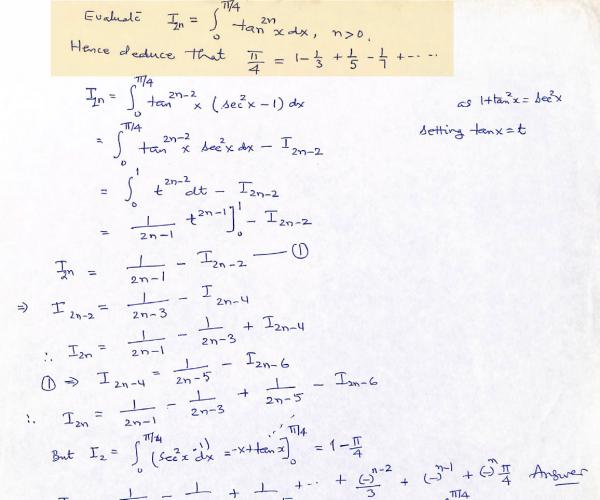 Evaluate I₂ₙ = ∫₀^{π/4} tan²ⁿx dx, n>0.
Hence deduce that π/4 = 1 - 1/3 + 1/5 - 1/7 + - - - -
I₂ₙ = ∫₀^{π/4} tan^{2n-2} x (sec²x - 1) dx    as 1+tan²x = sec²x
= ∫₀^{π/4} tan^{2n-2} x sec²x dx - I_{2n-2}    setting tanx = t
= ∫₀^1 t^{2n-2} dt - I_{2n-2}
= 1/(2n-1) t^{2n-1}]₀^1 - I_{2n-2}
I₂ₙ = 1/(2n-1) - I_{2n-2} —— ①
⇒ I_{2n-2} = 1/(2n-3) - I_{2n-4}
∴ I₂ₙ = 1/(2n-1) - 1/(2n-3) + I_{2n-4}
① ⇒ I_{2n-4} = 1/(2n-5) - I_{2n-6}
∴ I₂ₙ = 1/(2n-1) - 1/(2n-3) + 1/(2n-5) - I_{2n-6}
But I₂ = ∫₀^{π/4} (sec²x - 1) dx = -x + tanx]₀^{π/4} = 1 - π/4
+ ·· + (-)^{n-2}/3 + (-)^{n-1} + (-)^n π/4 Answer